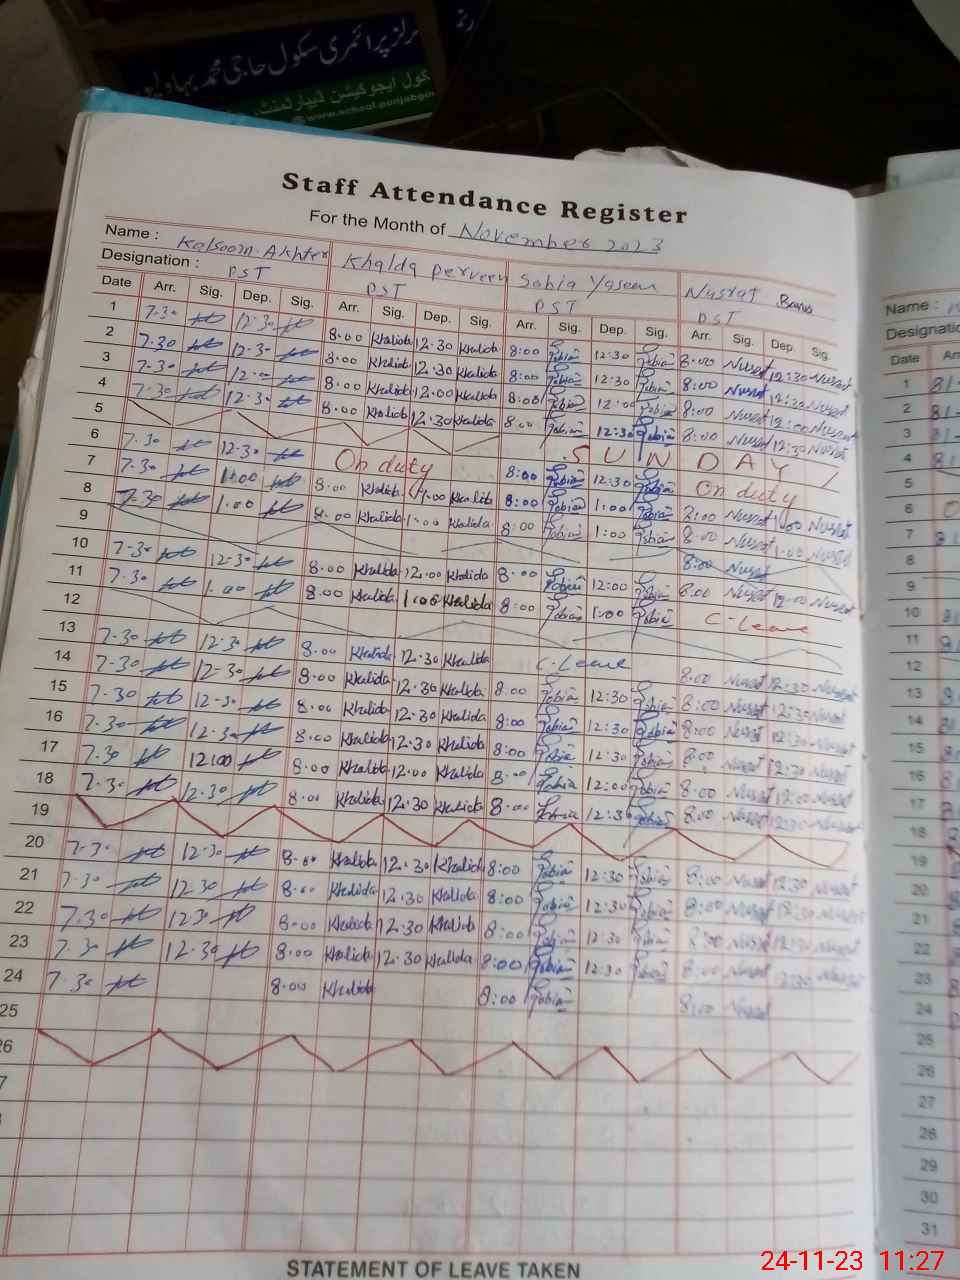 گرلز پرائمری سکول حاجی محمد بہاولپور
سکول ایجوکیشن ڈیپارٹمنٹ
www.school.punjab.gov
Staff Attendance Register
For the Month of November 2023
Name : Kalsoom Akhter Khalda perveen Sobia Yaseen Nusrat Bano
Designation : PST PST PST PST
Date Arr. Sig. Dep. Sig. Arr. Sig. Dep. Sig. Arr. Sig. Dep. Sig. Arr. Sig. Dep. Sig.
1 7-30 12-30 8-00 Khalida 12-30 Khalida 8:00 Sobia 12:30 Sobia 8:00 Nusrat 12:30 Nusrat
2 7-30 12-30 8-00 Khalida 12-30 Khalida 8:00 Sobia 12:30 Sobia 8:00 Nusrat 12:30 Nusrat
3 7-30 12-00 8-00 Khalida 12-00 Khalida 8:00 Sobia 12:00 Sobia 8:00 Nusrat 12:00 Nusrat
4 7-30 12-30 8-00 Khalida 12-30 Khalida 8:00 Sobia 12:30 Sobia 8:00 Nusrat 12:30 Nusrat
5 S U N D A Y
6 7-30 12-30 On duty 8:00 Sobia 12:30 Sobia On duty
7 7-30 1:00 8-00 Khalida 1:00 Khalida 8:00 Sobia 1:00 Sobia 8:00 Nusrat 1:00 Nusrat
8 7-30 1-00 8-00 Khalida 1-00 Khalida 8:00 Sobia 1:00 Sobia 8:00 Nusrat 1:00 Nusrat
9 8:00 Nusrat
10 7-30 12-30 8-00 Khalida 12-00 Khalida 8:00 Sobia 12:00 Sobia 8:00 Nusrat 12:00 Nusrat
11 7-30 1-00 8-00 Khalida 1-00 Khalida 8:00 Sobia 1:00 Sobia C-Leave
12
13 7-30 12-30 8-00 Khalida 12-30 Khalida C-Leave 8:00 Nusrat 12:30 Nusrat
14 7-30 12-30 8-00 Khalida 12-30 Khalida 8:00 Sobia 12:30 Sobia 8:00 Nusrat 12:30 Nusrat
15 7-30 12-30 8-00 Khalida 12-30 Khalida 8:00 Sobia 12:30 Sobia 8:00 Nusrat 12:30 Nusrat
16 7-30 12-30 8-00 Khalida 12-30 Khalida 8:00 Sobia 12:30 Sobia 8:00 Nusrat 12:30 Nusrat
17 7-30 12:00 8-00 Khalida 12-00 Khalida 8:00 Sobia 12:00 Sobia 8:00 Nusrat 12:00 Nusrat
18 7-30 12-30 8-00 Khalida 12-30 Khalida 8:00 Sobia 12:30 Sobia 8:00 Nusrat 12:30 Nusrat
19
20 7-30 12-30 8-00 Khalida 12-30 Khalida 8:00 Sobia 12:30 Sobia 8:00 Nusrat 12:30 Nusrat
21 7-30 12-30 8-00 Khalida 12-30 Khalida 8:00 Sobia 12:30 Sobia 8:00 Nusrat 12:30 Nusrat
22 7-30 12-30 8-00 Khalida 12-30 Khalida 8:00 Sobia 12:30 Sobia 8:00 Nusrat 12:30 Nusrat
23 7-30 12-30 8-00 Khalida 12-30 Khalida 8:00 Sobia 12:30 Sobia 8:00 Nusrat 12:30 Nusrat
24 7-30 8-00 Khalida 8:00 Sobia 8:00 Nusrat
25
26
7
STATEMENT OF LEAVE TAKEN
Name :
Date
1
2
3
4
5
6
7
8
9
10
11
12
13
14
15
16
17
18
19
20
21
22
23
24
25
26
27
28
29
30
31
24-11-23 11:27